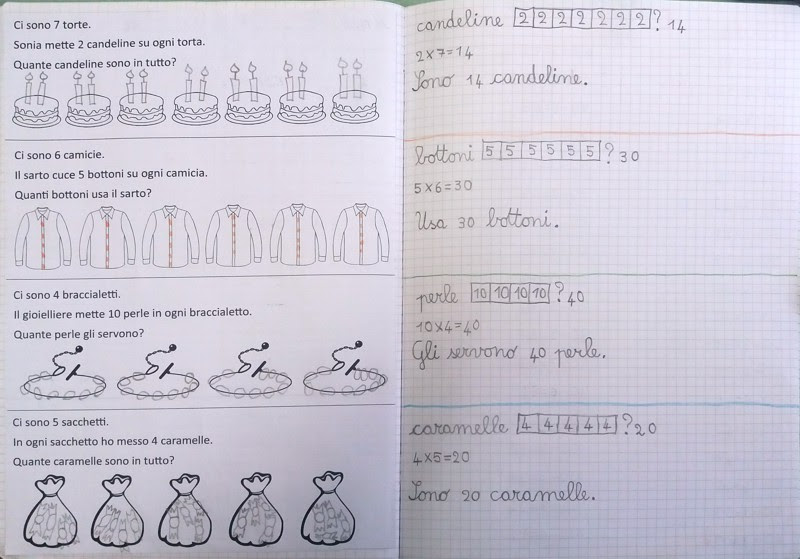 Ci sono 7 torte.
Sonia mette 2 candeline su ogni torta.
Quante candeline sono in tutto?
Ci sono 6 camicie.
Il sarto cuce 5 bottoni su ogni camicia.
Quanti bottoni usa il sarto?
Ci sono 4 braccialetti.
Il gioielliere mette 10 perle in ogni braccialetto.
Quante perle gli servono?
Ci sono 5 sacchetti.
In ogni sacchetto ho messo 4 caramelle.
Quante caramelle sono in tutto?
candeline 2 2 2 2 2 2 2 ? 14
2x7=14
Sono 14 candeline.
bottoni 5 5 5 5 5 5 ? 30
5x6=30
Usa 30 bottoni.
perle 10 10 10 10 ? 40
10x4=40
Gli servono 40 perle.
caramelle 4 4 4 4 4 ? 20
4x5=20
Sono 20 caramelle.